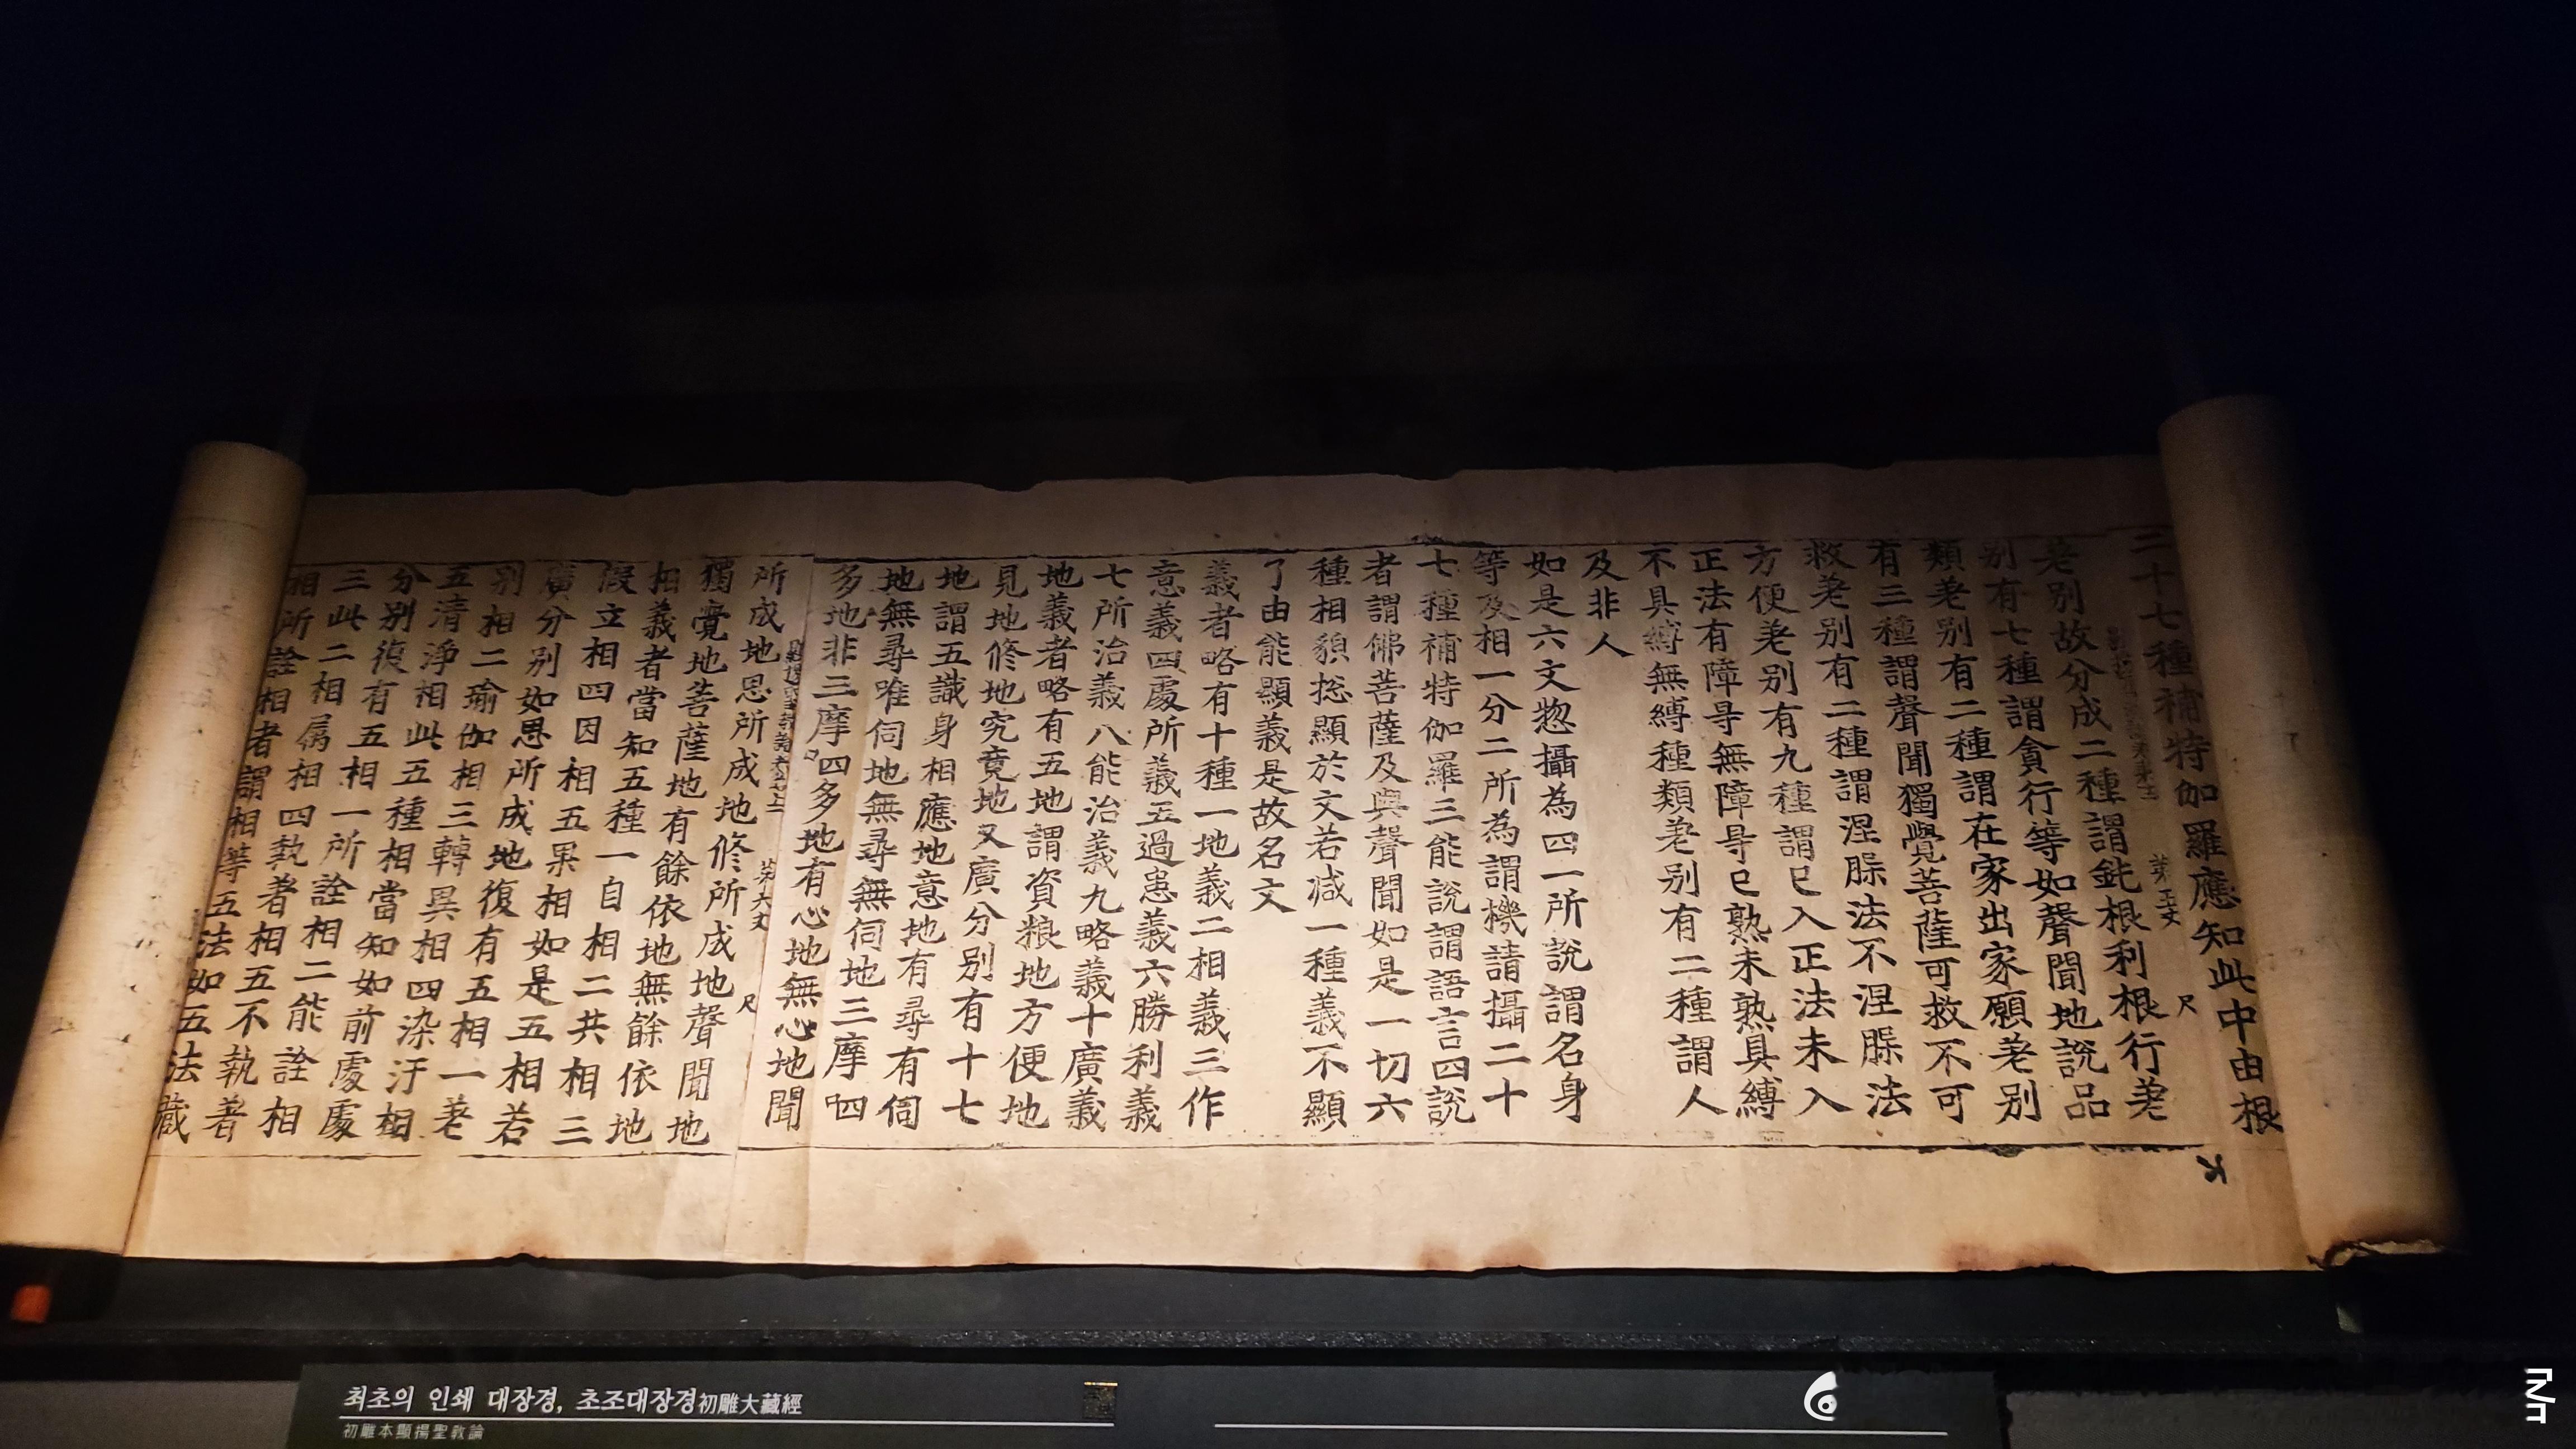 二十七種補特伽羅應知此中由根
差別故分成二種謂鈍根利根行差
別有七種謂貪行等如聲聞地說品
類差別有二種謂在家出家願差別
有三種謂聲聞獨覺菩薩可救不可
救差別有二種謂涅槃法不涅槃法
方便差別有九種謂已入正法未入
正法有障㝵無障㝵已熟未熟具縛
不具縛無縛種類差別有二種謂人
及非人
如是六文惣攝為四一所說謂名身
等及相一分二所為謂機請攝二十
七種補特伽羅三能說謂語言四說
者謂佛菩薩及與聲聞如是一切六
種相貌揔顯於文若減一種義不顯
了由能顯義是故名文
義者略有十種一地義二相義三作
意義四處所義五過患義六勝利義
七所治義八能治義九略義十廣義
地義者略有五地謂資粮地方便地
見地修地究竟地又廣分別有十七
地謂五識身相應地意地有尋有伺
地無尋唯伺地無尋無伺地三摩呬
多地非三摩呬多地有心地無心地聞
第六丈 尺
所成地思所成地修所成地聲聞地
獨覺地菩薩地有餘依地無餘依地
相義者當知五種一自相二共相三
假立相四因相五果相如是五相若
廣分別如思所成地復有五相一差
別相二瑜伽相三轉異相四染汙相
五清淨相此五種相當知如前處處
分別復有五相一所詮相二能詮相
三此二相屬相四執著相五不執著
相所詮相者謂相等五法如五法藏
최초의 인쇄 대장경, 초조대장경初雕大藏經
初雕本顯揚聖敎論